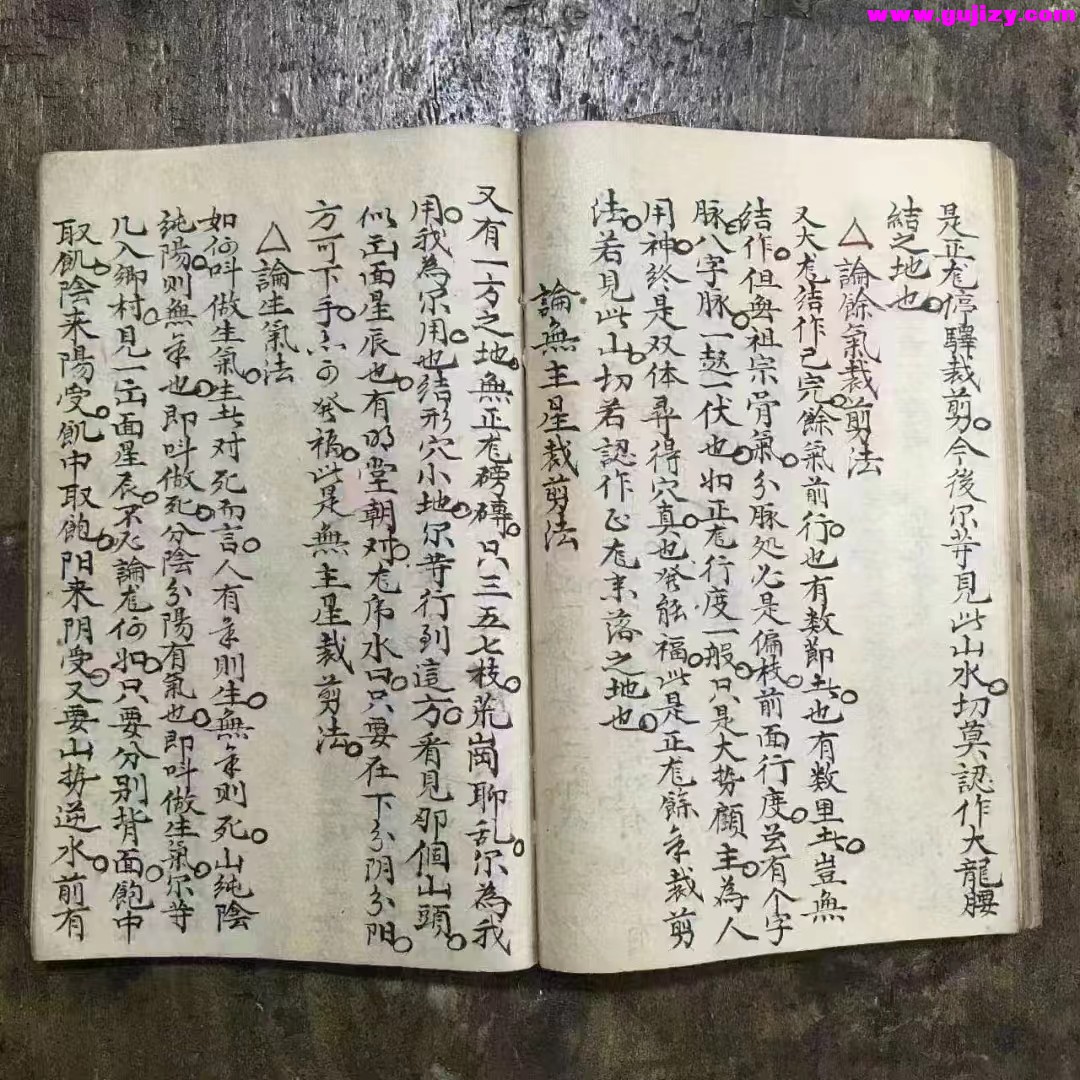 www.gujizy.com
是正龙停驛裁剪。今後尔等見此山水。切莫認作大龍腰
結之地也。
△論餘氣裁剪法
又大龙結作已完。餘氣前行。也有数節出。也有数里出。豈無
結作。但與祖宗骨氣。分脉処必是偏枝。前面行度。並有个字
脉。八字脉。一起一伏也。如正龙行度一般。只是大势顧主。為人
用神。終是双体尋得穴真。也発能福。此是正龙餘气裁剪
法。若見此山。切若認作正龙来落之地也。
論無主星裁剪法
又有一方之地。無正龙磅礴。只三五七枝。荒崗聊乱。尔為我
用。我為尔用。也結形穴小地。尔等行到這方。看見那個山頭。
似出面星辰也。有明堂朝对。龙虎水口。只要在下分阴分阳。
方可下手。亦可発福。此是無主星裁剪法。
△論生氣法
如何呌做生氣。生出对死而言。人有气則生。無气則死。山純陰
純陽。則無气也。即呌做死。分陰分陽有氣也。即呌做生氣。尔等
凡入鄉村。見一出面星辰。不必論龙何如。只要分别背面。飽中
取飢。陰来陽受。飢中取飽。阳来阴受。又要山势逆水。前有